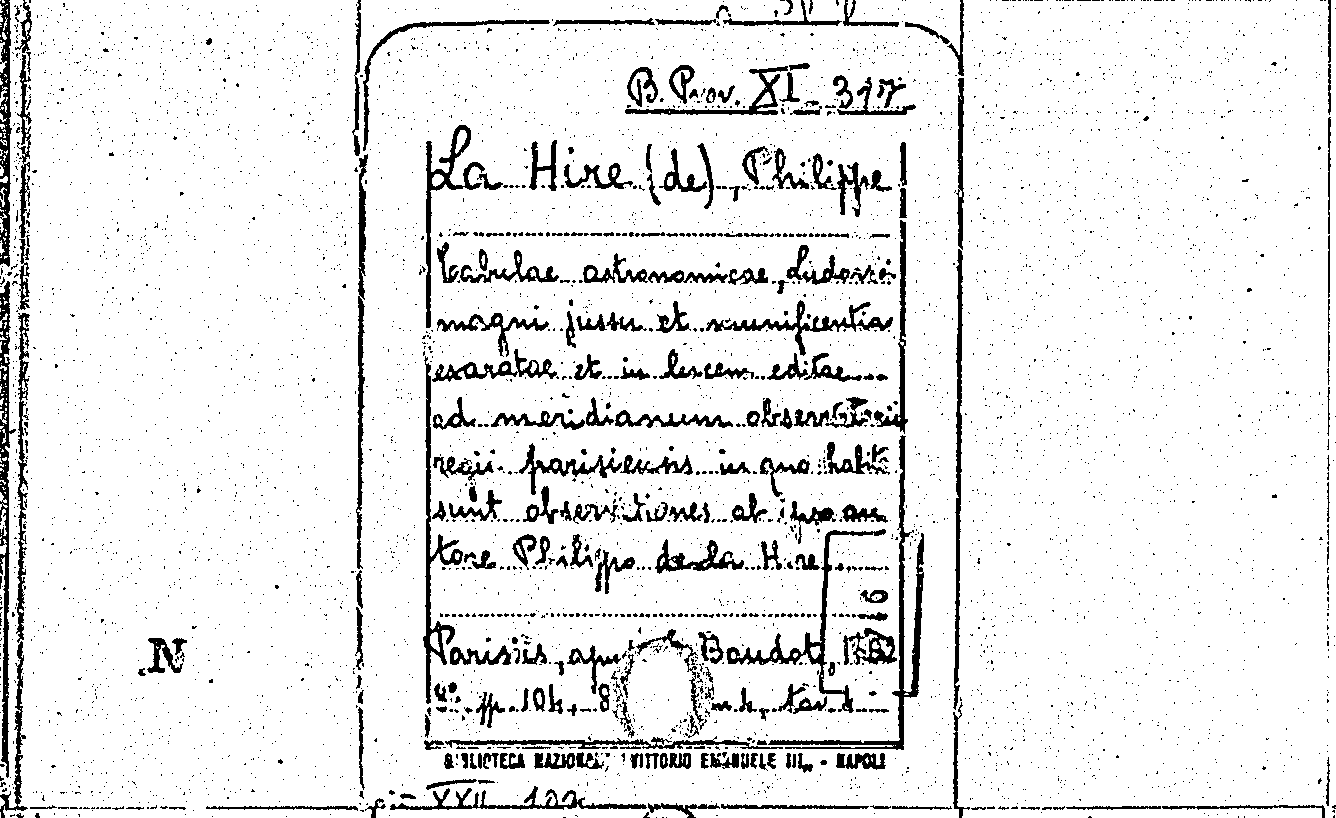 B. Prov. XI 317
La Hire (de), Philippe
Tabulae astronomicae, Ludovici
magni jussu et munificentia
exaratae et in lucem editae...
ad meridianum observatorii
regii parisiensis in quo habit
sunt observationes ab ipso au
tore Philippo de La Hire
Parisiis, apud Baudot,
4° pp. 104, 8 tav
BIBLIOTECA NAZIONALE VITTORIO EMANUELE III - NAPOLI
N
16
XXII